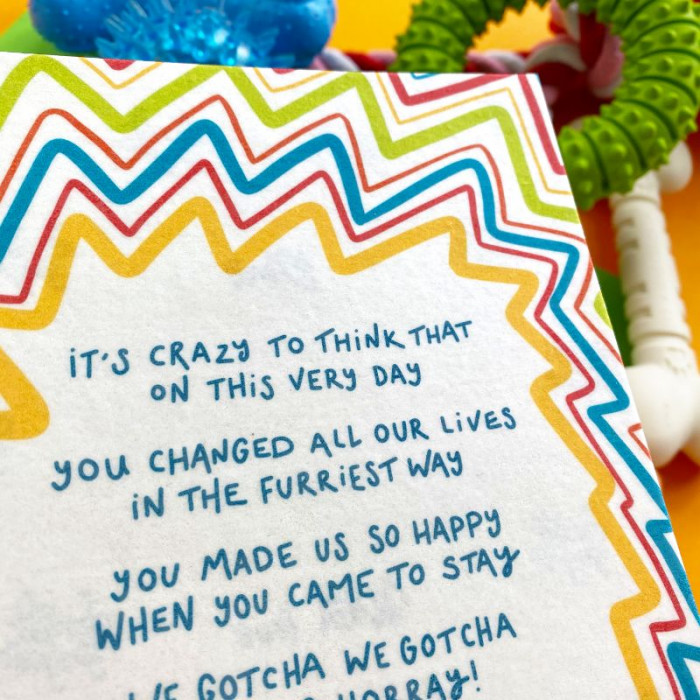 iT'S CRAZY TO THiNK THAT
ON THiS VERY DAY
YOU CHANGED ALL OUR LiVES
iN THE FURRiEST WAY
YOU MADE US SO HAPPY
WHEN YOU CAME TO STAY
GOTCHA WE GOTCHA
HORRAY!